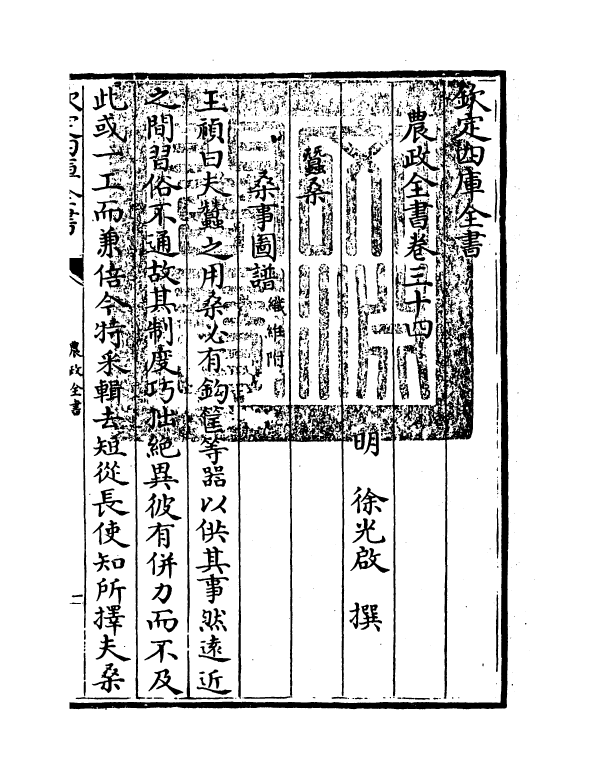 欽定四庫全書
農政全書卷三十四
明 徐光啟 撰
蠶桑
桑事圖譜 織絍附
王禎曰夫蠶之用桑必有鈎筐等器以供其事然遠近
之間習俗不通故其制度巧拙絕異彼有併力而不及
此或一工而兼倍今特采輯去短從長使知所擇夫桑
欽定四庫全書
農政全書